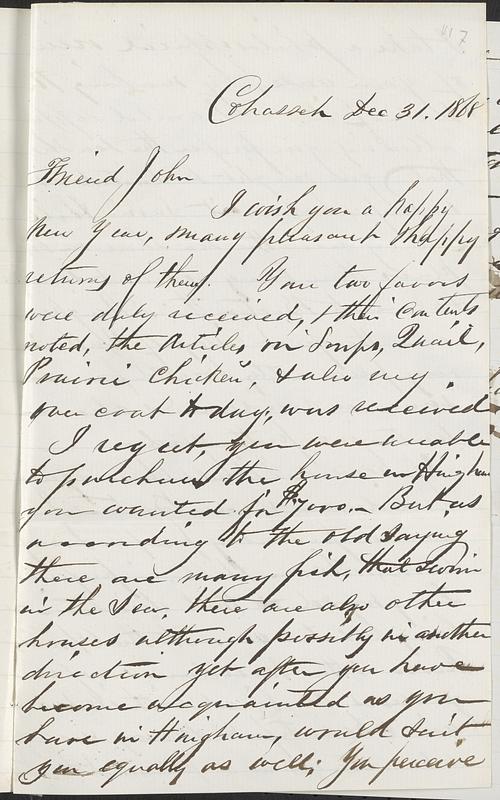 117
Cohasset Dec 31. 1868
Friend John
I wish you a happy
New Year, many pleasant & happy
returns of them. Your two favors
were duly received, & their Contents
noted, the Articles on Snipe, Quail,
Prairie Chicken, & also my
over coat to day, was received
I regret, you were unable
to purchase the house in Hingham
you wanted for $7000.– But as
according to the old Saying
there are many fish, that swim
in the Sea, there are also other
houses although possibly in another
direction yet after you have
become acquainted as you
have in Hingham, would Suit
you equally as well; You perceive